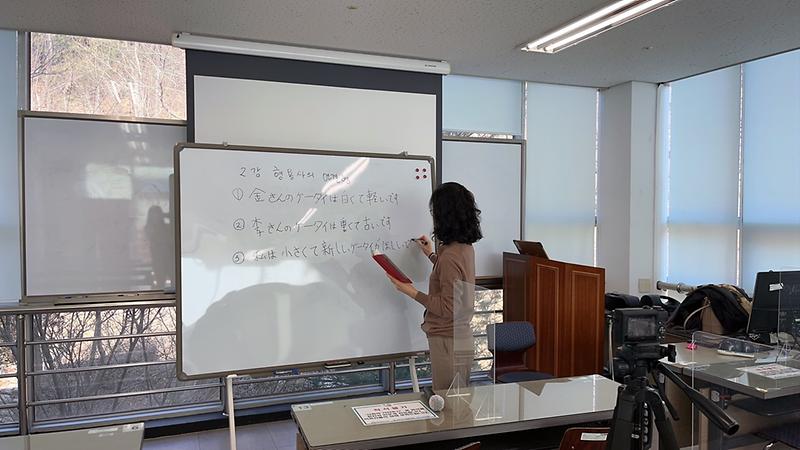 2강 형용사의 연결형
① 金さんのケータイは白くて軽いです
② 李さんのケータイは重くて古いです
③ 私は 小さくて新しいケータイがほしいで